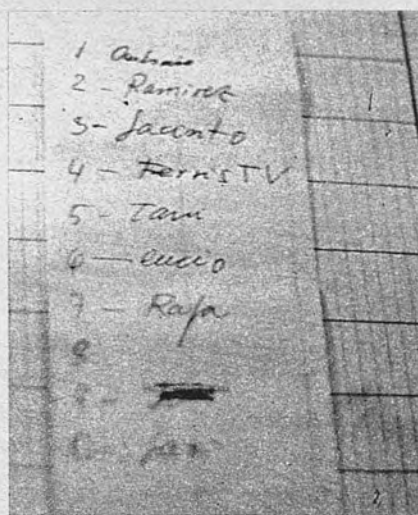 1 Antonio
2 - Ramirez
3 - Jacinto
4 - Ferris TV
5 - Tani
6 - Lucio
7 - Rafa
8
9 -